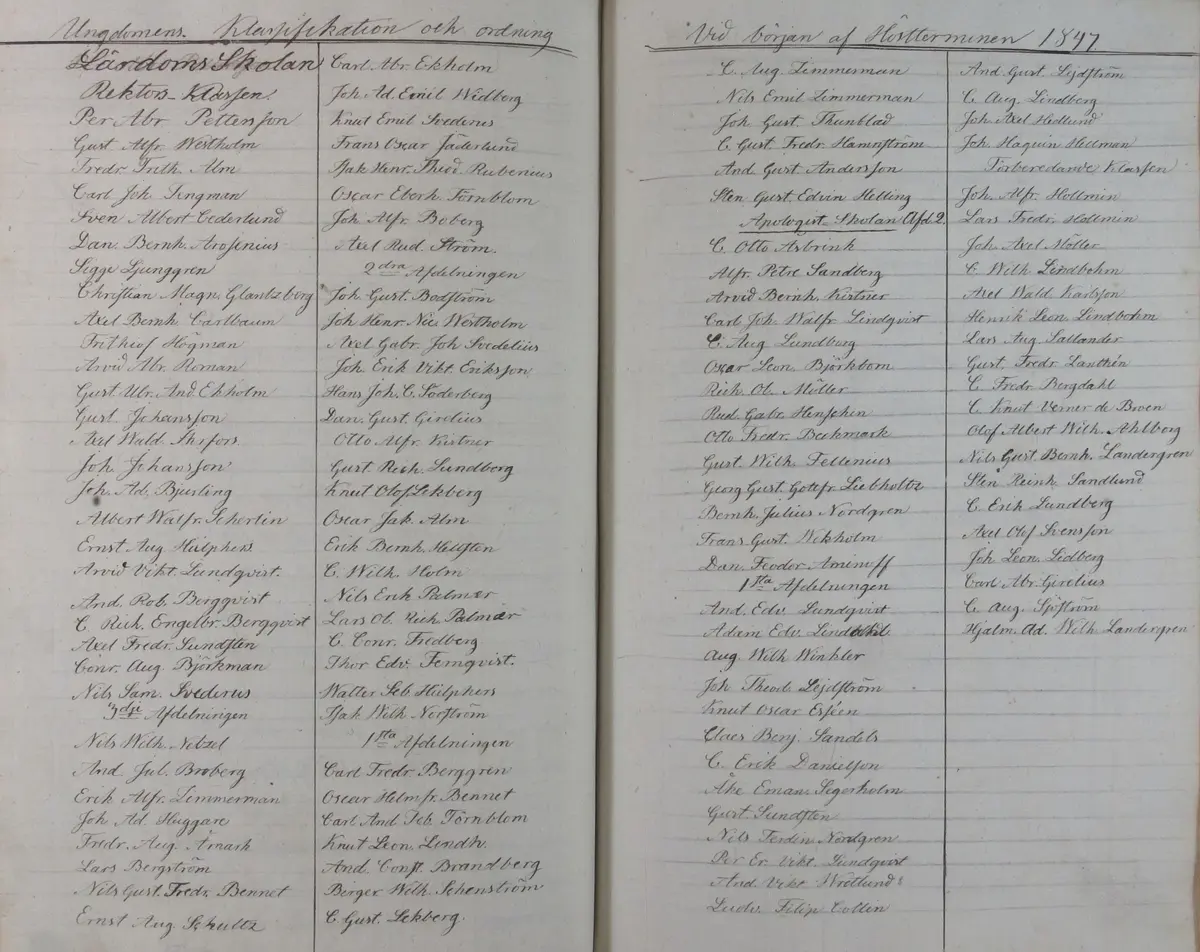 Ungdomens Klassifikation och ordning
Lärdoms Skolan
Rektors-Klassen.
Per Abr. Pettersson
Gust. Alfr. Westholm
Fredr. Frith. Alm
Carl Joh. Tingman
Sven Albert Cederlund
Dan. Bernh. Arosenius
Sigge Ljunggren
Christian Magn. Glantzborg
Axel Bernh. Carlbaum
Frithiof Högman
Arvid Abr. Roman
Gust. Ulr. And. Ekholm
Gust. Johansson
Axel Wald.
Joh. Johansson
Joh. Ad. Bjurling
Albert Walfr. Schertin
Ernst Aug. Hülphers
Arvid Vikt. Lundqvist.
And. Rob. Bergqvist
C. Rich. Engelbr. Bergqvist
Axel Fredr. Sundsten
Conr. Aug. Björkman
Nils Sam. Svederus
3dje Afdelningen
Nils Wilh. Netzel
And. Jul. Broberg
Erik Alfr. Zimmerman
Joh. Ad. Huggare
Fredr. Aug. Åmark
Lars Bergström
Nils Gust. Fredr. Bennet
Ernst Aug. Schultz
Carl Abr. Ekholm
Joh. Ad. Emil Wedberg
Knut Emil Svederus
Frans Oscar Jäderlund
Isak Henr. Theod. Rubenius
Oscar Eberh. Törnblom
Joh. Alfr. Boberg
Axel Rud. Ström.
2dra Afdelningen
Joh. Gust. Bodström
Joh. Henr. Nic. Westholm
Axel Gabr. Joh. Svedelius
Joh. Erik Vikt. Eriksson
Hans Joh. C. Söderberg
Dan. Gust. Girolius
Otto Alfr. Kistner
Gust. Rich. Sundberg
Knut Olof Lekberg
Oscar Jak. Alm
Erik Bernh. Hellsten
C. Wilh. Holm
Nils Erik Palmær
Lars Ol. Rich. Palmær
C. Conr. Fredberg
Thor Edv. Fernqvist.
Walter Seb. Hülphers
Isak Wilh. Norström
1sta Afdelningen
Carl Fredr. Berggren
Oscar Helmfr. Bennet
Carl And. Seb. Törnblom
Knut Leon. Lindh.
And. Const. Brandberg
Berger Wilh. Schenström
C. Gust. Lekberg.
Vid början af Höstterminen 1847.
C. Aug. Zimmerman
Nils Emil Zimmerman
Joh. Gust. Thunblad
C. Gust. Fredr. Hammström
And. Gust. Andersson
Sten Gust. Edvin Helling
Apologist-Skolan Afd 2.
C. Otto Asbrink
Alfr. Petre Sandberg
Arvid Bernh. Kistner
Carl Joh. Walfr. Lindqvist
C. Aug. Lundborg
Oscar Leon. Björkbom
Rich. Ol. Möller
Rud. Gabr. Henschen
Otto Fredr. Beckmark
Gust. Wilh. Fellenius
Georg Gust. Gottfr. Liebholtz
Bernh. Julius Nordgren
Frans Gust. Wekholm
Dan. Feodor Aminoff
1sta Afdelningen
And. Edv. Lundqvist
Adam Edv.
Aug. Wilh. Winkler
Joh. Theod. Lejdström
Knut Oscar Esséen
Claes Benj. Sandels
C. Erik Danielson
Åke Eman. Segerholm
Gust. Sundsten
Nils Ferdin. Nordgren
Per Er. Vikt. Lundqvist
And. Vikt. Wretlund
Ludv. Filip Collin
And. Gust. Lejdström
C. Aug. Lindberg
Joh. Axel Hedlund
Joh. Haquin Hellman
Förberedande Klassen
Joh. Alfr. Hollmin
Lars Fredr. Hollmin
Joh. Axel Möller
C. Wilh. Lindbohm
Axel Wald. Karlsson
Henrik Leon. Lindbohm
Lars Aug. Sallander
Gust. Fredr. Lanthén
C. Fredr. Bergdahl
C. Knut Verner de Broen
Olof Albert Wilh. Ahlberg
Nils Gust. Bernh. Landergren
Sten Reinh. Sandlund
C. Erik Lundberg
Axel Olof Svensson
Joh. Leon. Lidberg
Carl Abr. Girolius
C. Aug. Sjöström
Hjalm. Ad. Wilh. Landergren